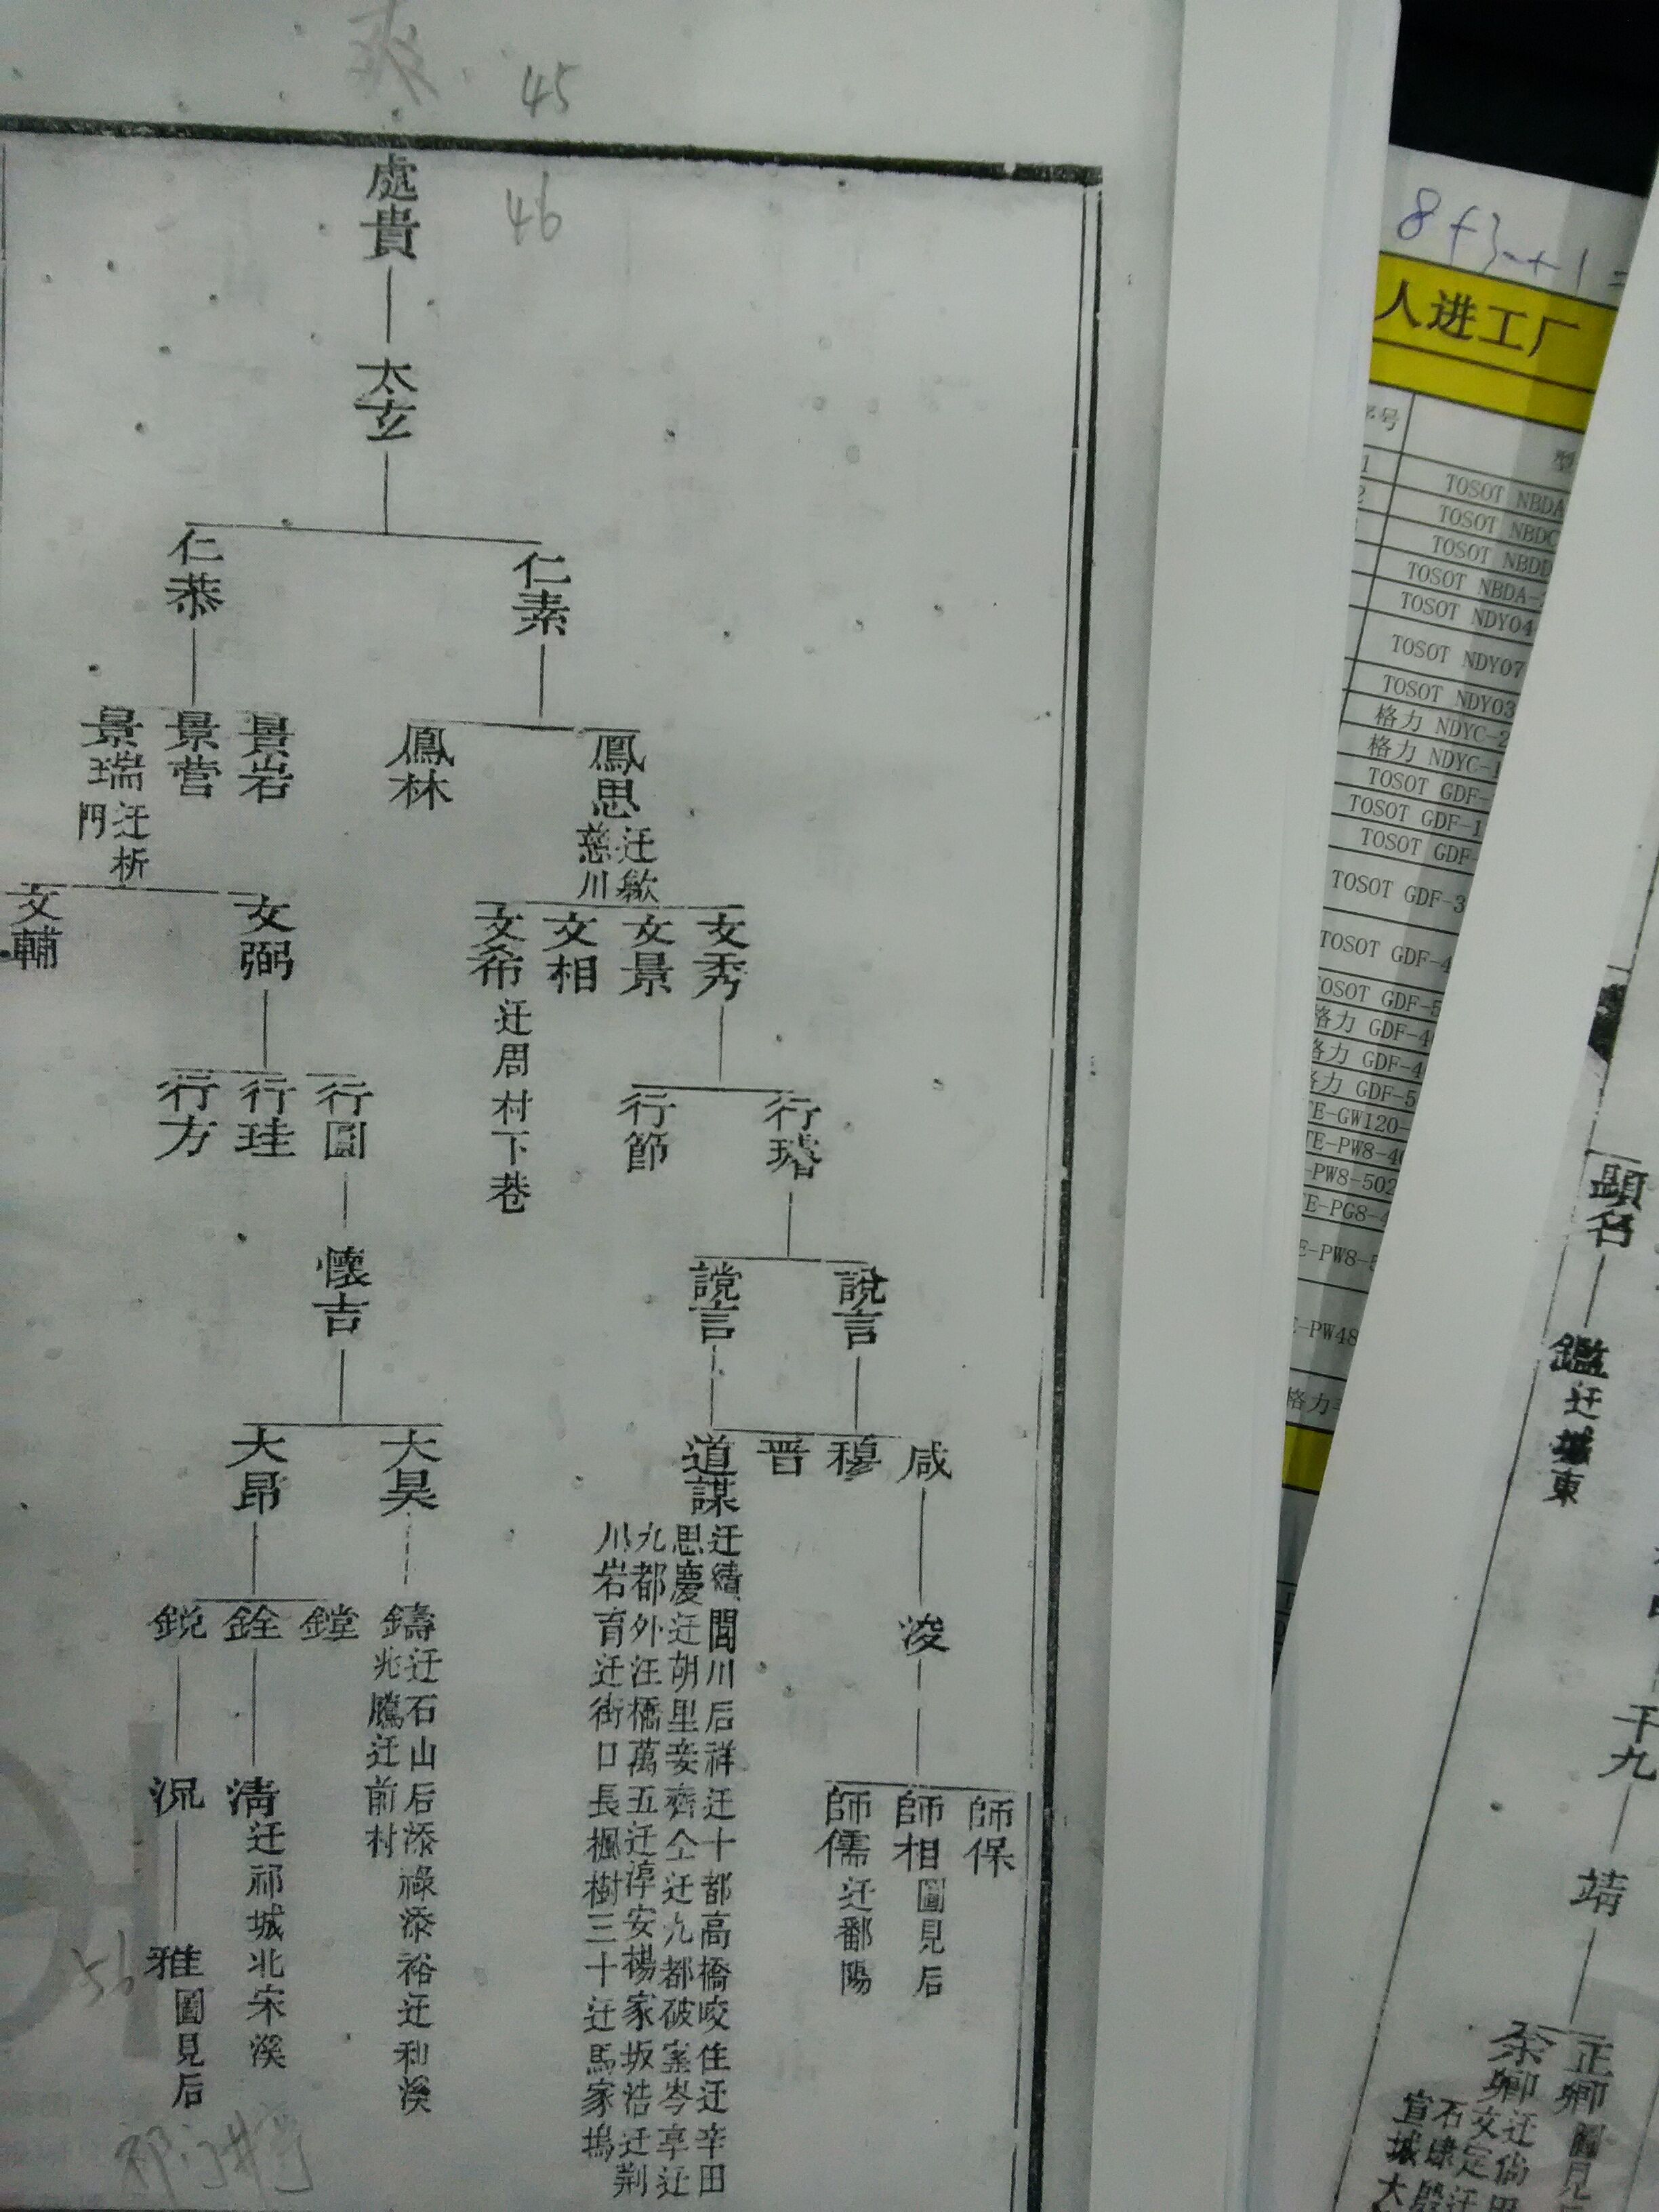 45
46
處貴
太玄
仁素
仁恭
鳳思
迁歙
慈川
鳳林
景岩
景营
景瑞
迁祈
門
文秀
文景
文相
文希
迁周村下巷
文弼
文輔
行璿
行節
行圓
行珪
行方
說言
讜言
懷吉
咸
穆
晋
道謀
迁績閭川后祥迁十都高橋咬住迁辛田
思慶迁胡里妾齊仝迁九都破寨岑亭迁
九都外汪橋萬五迁淳安楊家坂浩迁荆
川岩育迁街口長楓樹三十迁馬家塢
大昊
大昂
浚
鑄
迁石山后添祿添裕迁利溪
兆鷹迁前村
鏜
銓
鋭
師保
師相
圖見后
師儒
迁鄱陽
清
迁祁城北宋溪
況
雅
圖見后
56
8+3
人进工厂
序号
型
1
TOSOT NBDA
2
TOSOT NBDC
TOSOT NBDD
TOSOT NBDA-
TOSOT NDY04
TOSOT NDY07
TOSOT NDY03
格力 NDYC-2
格力 NDYC-1
TOSOT GDF-
TOSOT GDF-1
TOSOT GDF-
TOSOT GDF-3
TOSOT GDF-4
TOSOT GDF-5
格力 GDF-4
格力 GDF-4
格力 GDF-5
TE-GW120-
TE-PW8-40
-PW8-502
E-PG8-4
E-PW8-5
E-PW48
格力
顕名
鑑
迁城東
千九
靖
正卿
圖見
余卿
迁
文定
石
宣城大